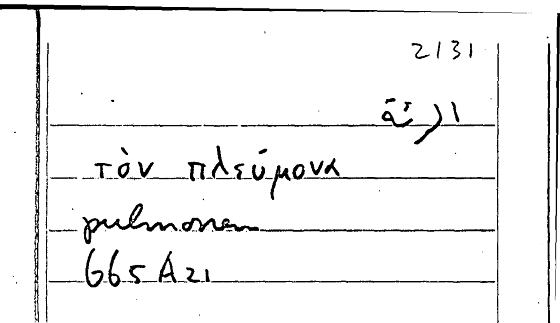 2131
τὸν πλεύμονα
pulmonem
665 A 21